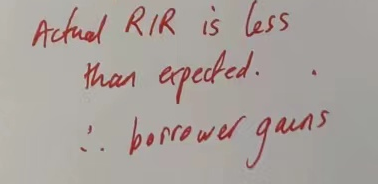 Actual RIR is less
than expected.
∴ borrower gains